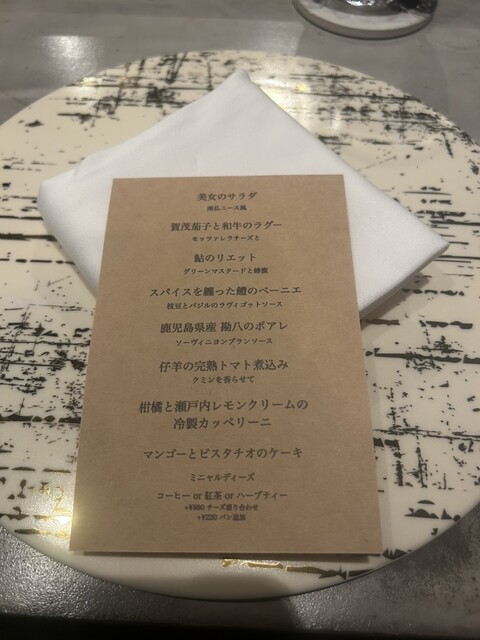 美女のサラダ
南仏ニース風
賀茂茄子と和牛のラグー
モッツァレラチーズと
鮎のリエット
グリーンマスタードと蜂蜜
スパイスを纏った鱧のベーニエ
枝豆とバジルのラヴィゴットソース
鹿児島県産 勘八のポアレ
ソーヴィニヨンブランソース
仔羊の完熟トマト煮込み
クミンを香らせて
柑橘と瀬戸内レモンクリームの
冷製カッペリーニ
マンゴーとピスタチオのケーキ
ミニャルディーズ
コーヒー or 紅茶 or ハーブティー
+¥980 チーズ盛り合わせ
+¥220 パン追加